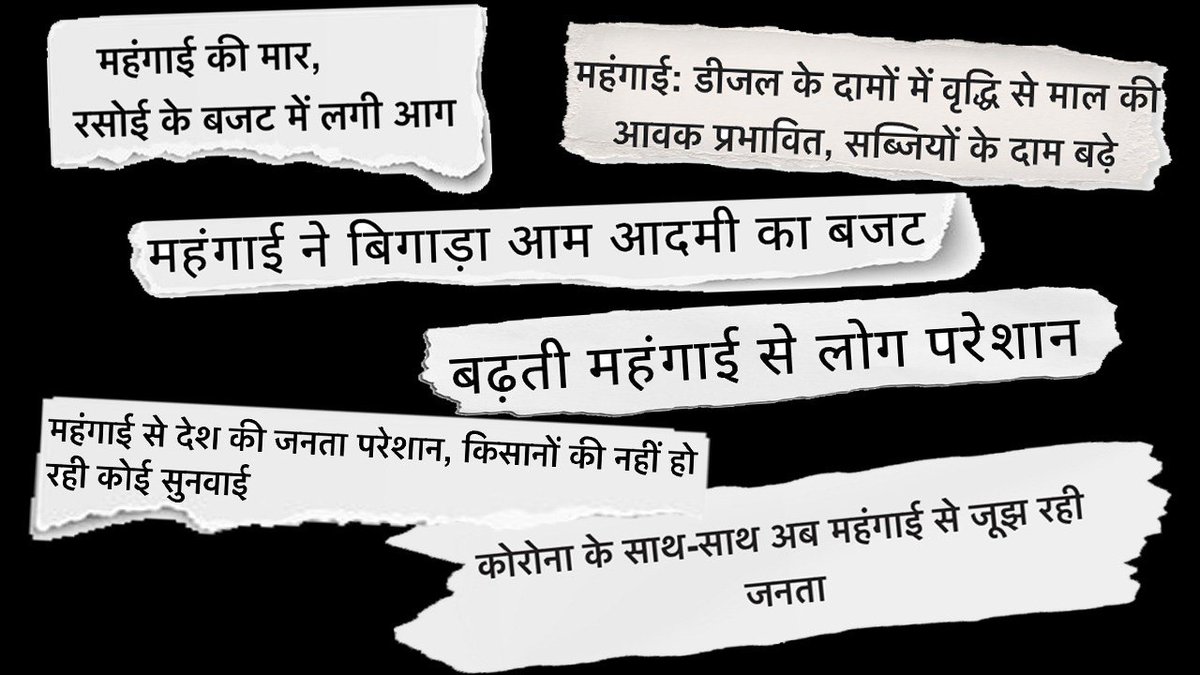 महंगाई की मार,
रसोई के बजट में लगी आग
महंगाई: डीजल के दामों में वृद्धि से माल की
आवक प्रभावित, सब्जियों के दाम बढ़े
महंगाई ने बिगाड़ा आम आदमी का बजट
बढ़ती महंगाई से लोग परेशान
महंगाई से देश की जनता परेशान, किसानों की नहीं हो
रही कोई सुनवाई
कोरोना के साथ-साथ अब महंगाई से जूझ रही
जनता